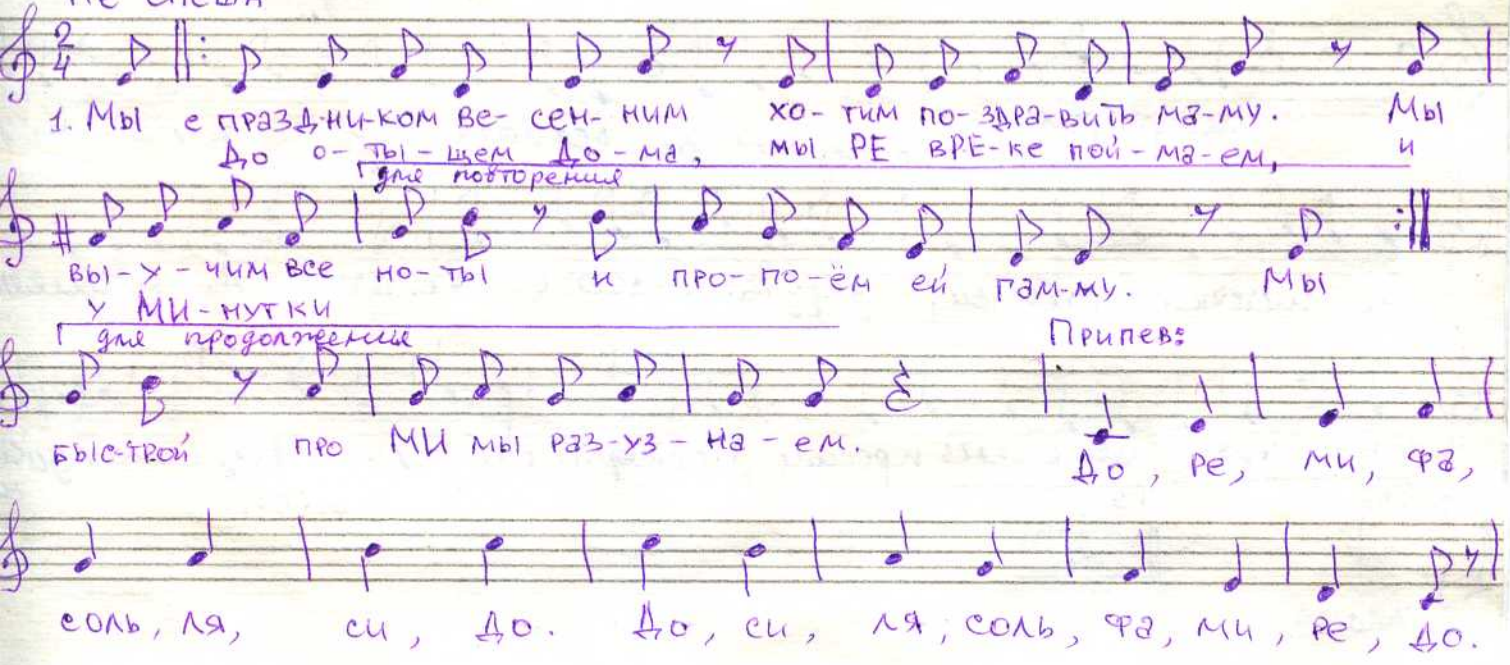 Не спеша
2/4
1. Мы с праздни-ком ве-сен-ним хо-тим по-здра-вить ма-му. Мы
До о-ты-щем до-ма, мы РЕ вРЕ-ке пой-ма-ем, и
для повторения
вы-у-чим все но-ты и про-по-ём ей гам-му. Мы
у МИ-нутки
для продолжения Припев:
быс-трой про МИ мы раз-уз-на-ем. До, ре, ми, фа,
соль, ля, си, до. До, си, ля, соль, фа, ми, ре, до.